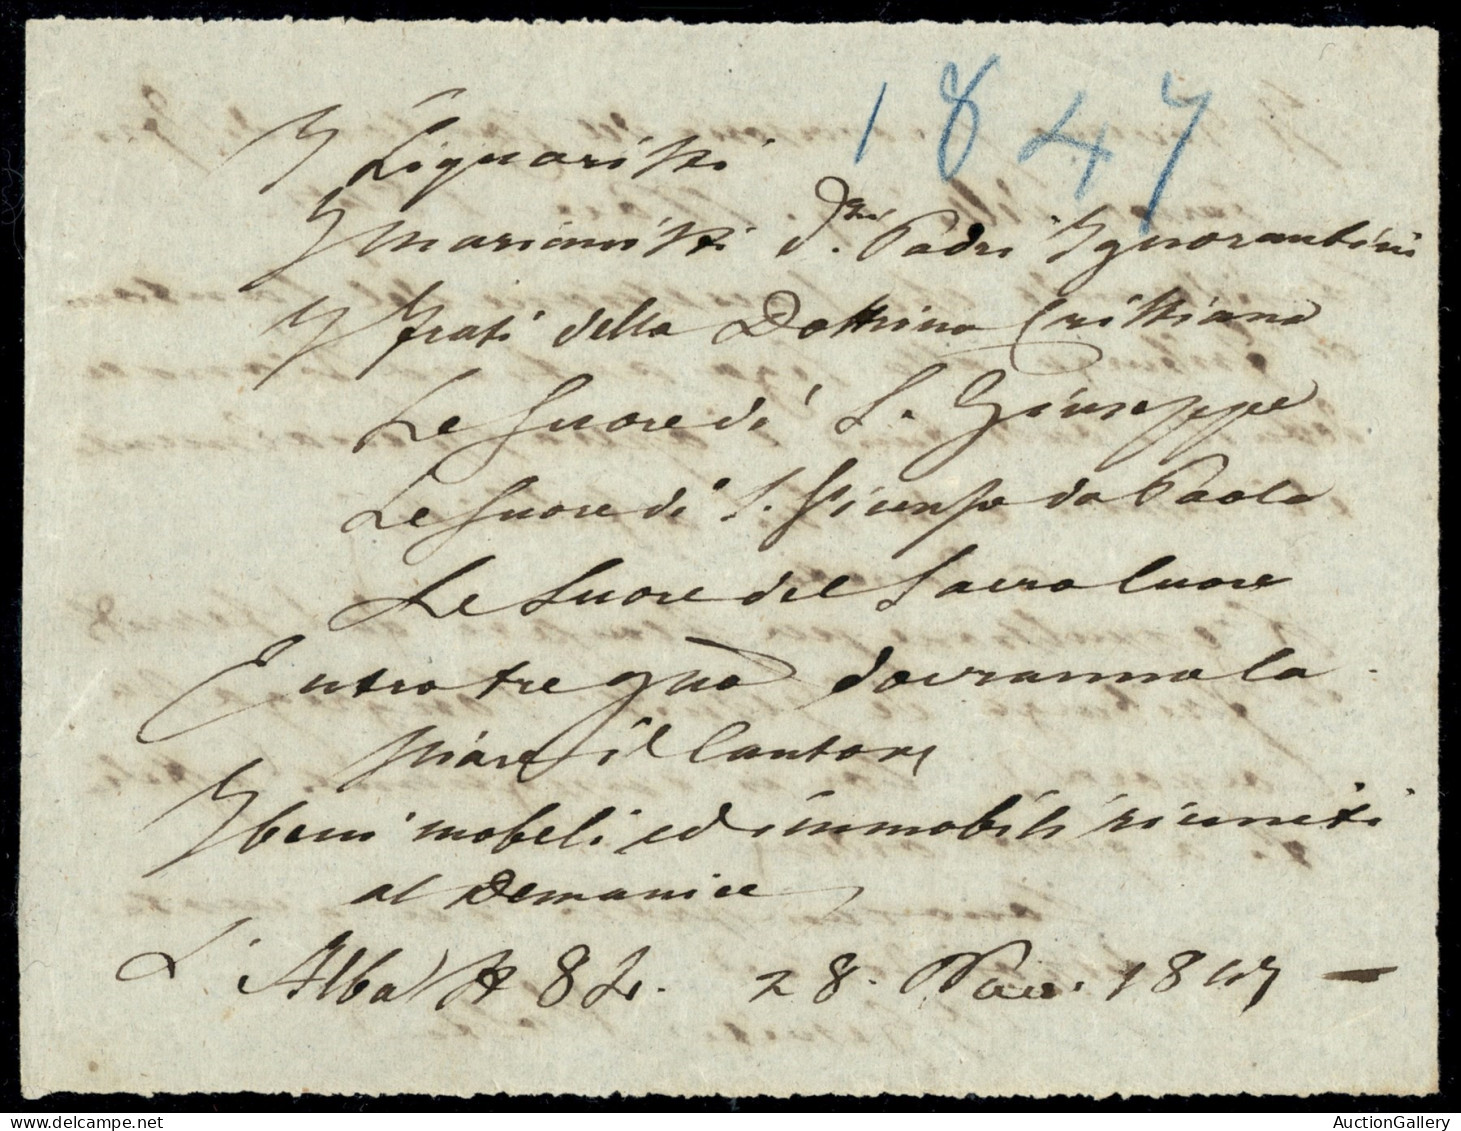 1847
I Liguoristi
I Marianisti d.ti Padri Ignorantini
I frati della Dottrina Cristiana
Le Suore di S. Giuseppe
Le Suore di S. Vicenzo da Paola
Le Suore del Sacro Cuore
Entro tre gni dovranno la
sciare il Cantone
I beni mobeli ed immobili riuniti
al Demanio
L'Alba N 82. 28. Nov. 1847
AuctionGallery